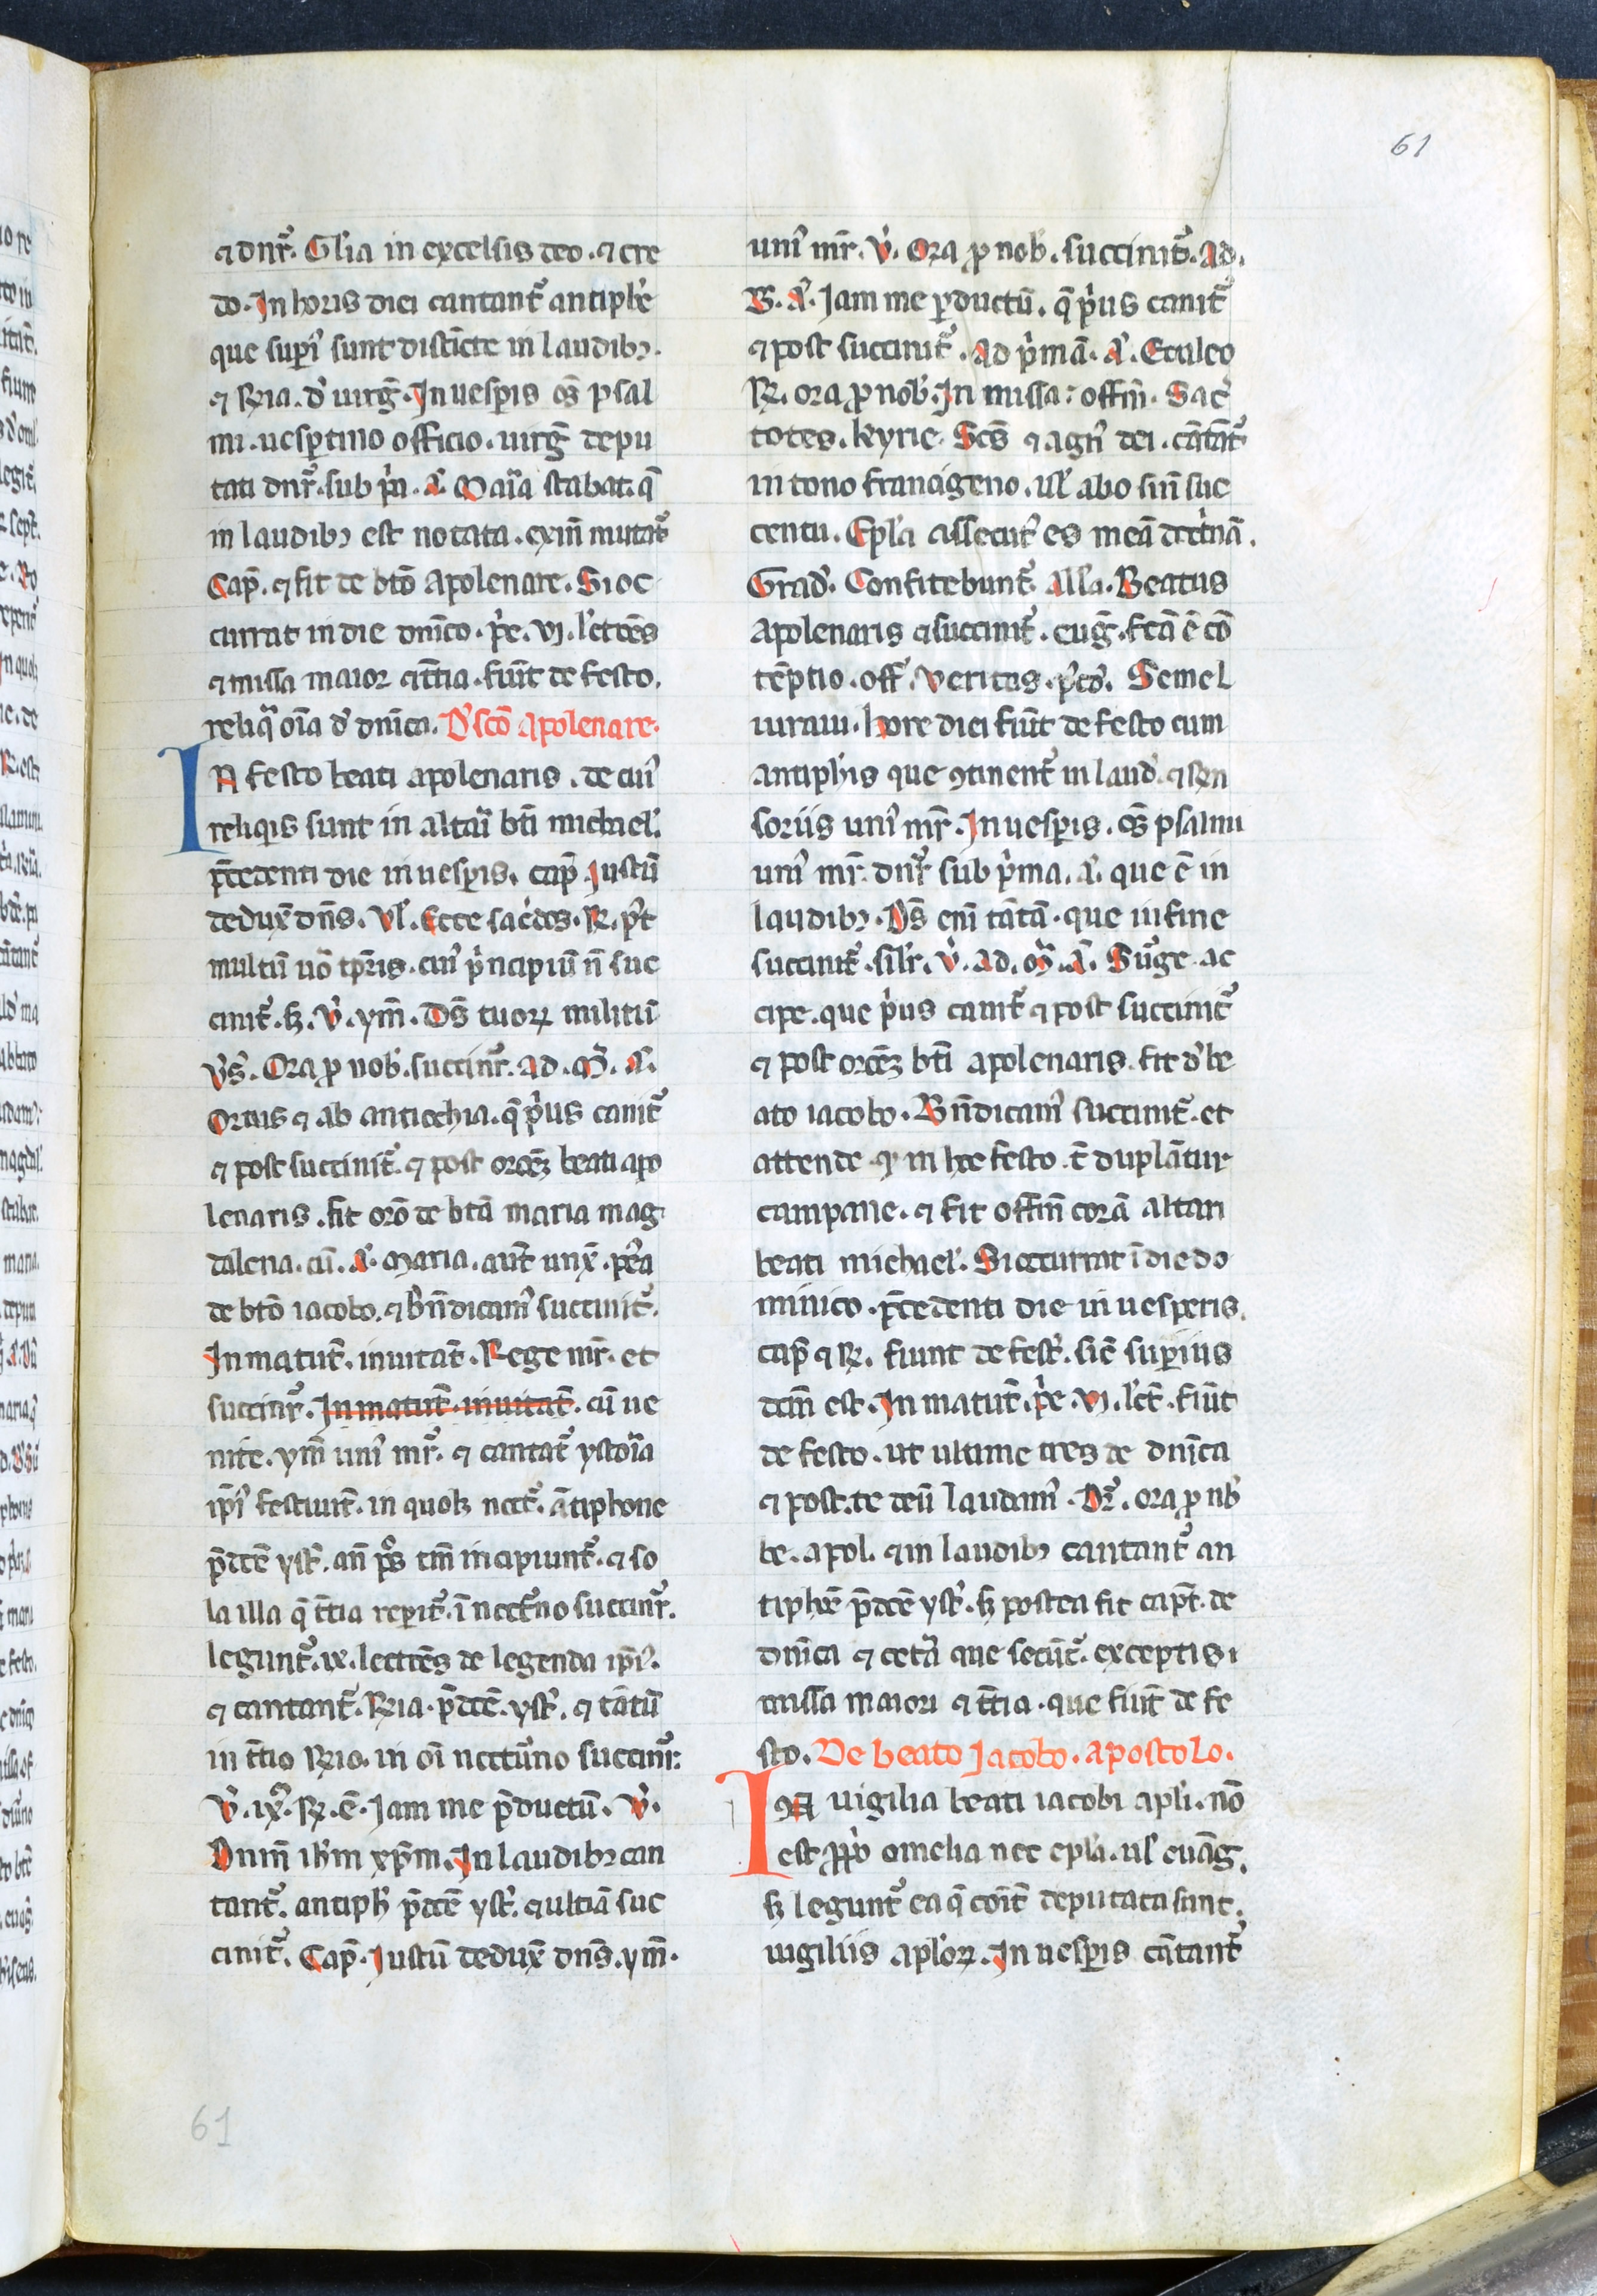 61
⁊ dnr̄. Gl̓ia in excelsis deo. ⁊ cre
do. In horis diei cantant᷑ antiph̓e
que supi᷑ sunt distīcte in laudibꝫ.
⁊ R̓ria. d̓ uirg̅. In uesp̱is om̄s psal
mi. uesp̱tino officio. uirg̅ depu
tati dnr̄. sub p̓ia. A̓. Maria stabat. q̄
in laudibꝫ est notata. exin̄ mutat᷑
Cap̅. ⁊ fit de bt̄o apolenare. Si oc
currat in die dn̄ico. p̓e. vj. l̓ectōes
⁊ missa maior ⁊ t̄cia. fiūt de festo.
reliq̄ oīa d̓ dn̄ica. D̓ sc̄o Apolenare.
IN festo beati apolenaris. de cui᷒
reliqis sunt in altari bt̄i michael̓.
p̄cedenti die in uesp̱is. cap̅ Justū
deduxᷓ dn̄s. Vl̓. Ecce sac̓dos. R̓. p̓t
multū uō tp̄ris. cui᷒ p̓ncipiū n̄ suc
cinit᷑. sꝫ. V̓. ym̅. Ds̄ tuoꝝ militū
V̓s. Ora ꝓ nob̓. succinr̄. ad. M̓. A̓.
Ortus ⁊ ab antiochia. q̄ p̓us canit᷑
⁊ post succinit᷑. ⁊ post orōeꝫ beati apo
lenaris. fit orō de bt̄a maria mag
dalena. cū. A̓. Maria. aut̄ unx̄. p̱ea
de bt̄o iacobo. ⁊ bn̄dicam᷒ succinit᷑.
In matut̄. inuitat̄. Rege mr̄. et
succinr̄. In matut̄. inuitat̄. cū ue
nite. ym̅ uni᷒ mr̄. ⁊ cantat᷑ ystoria
ip̄i᷒ festiuit̄. in quolꝫ noct᷑. ātiphone
p̄dcē yst̓. an̄ ps̄ tm̄ incipiunt᷑. ⁊ so
la illa q̄ t̄cia rep̱it᷑. ī noct̓no succinr̄.
legunt᷑. ix. lectōes de legenda ip̄i᷒.
⁊ cantant᷑. R̓ria. p̄dcē. yst̓. ⁊ tātū
in t̄cio R̓rio. in oī noctur̓no succinr̄:
V̓. ix᷑. R̓. ē. Jam me p̱ductū. V̓.
Dnm̄ ih̄m xp̄m. In laudibꝫ can
tant᷑. antiph̓ p̄dcē yst̓. ⁊ ultiā suc
cinit᷑. Cap̅. Justū deduxᷓ dn̄s. ym̅.
uni᷒ mr̄. V̓. Ora ꝓ nob̓. succinit᷑. Ad.
B̓. A̓. Jam me p̱ductū. q̄ p̓us canit᷑
⁊ post succinit᷑. Ad p̓mā. A̓. Eculeo
R̓. ora ꝓ nob̓. In missa: offm̄. Sac̓
dotes. kyrie. Sc̄s ⁊ agn᷒ dei. cātāt᷑
in tono francigeno. ul̓ alio sin̄ suc
centu. Epl̓a assecut᷒ es meā doct̓nā.
Grad̓. Confitebunt᷑. All̓a. Beatus
apolenaris ⁊ succinit᷑. eug̅. fcā ē cō
tēptio. off̓. Veritas. p̓cō. Semel
iuraui. hore diei fiūt de festo cum
antiph̓is que ꝯtinent᷑ in laud̓. ⁊ R̓ren
soriis uni᷒ mr̄. In uesp̱is. om̄s psalmi
uni᷒ mr̄. dnr̄ sub p̓ma. A̓. que ē in
laudibꝫ. Ds̄ eni᷒ tātā. que in fine
succinit᷑. sil̓r. V̓. ad. M̓. A̓. Surge ac
cipe. que p̓us canit᷑ ⁊ post succinit᷑
⁊ post orōeꝫ bt̄i apolenaris. fit d̓ be
ato iacobo. Bn̄dicam᷒ succinit᷑. et
attende. qꝫ in hoc festo. t̄ duplātur
campane. ⁊ fit offm̄ corā altari
beati michael̓. Si occurrat ī die do
minico. p̄cedenti die in uesperis.
cap̅ ⁊ R̓. fiunt de fest̓. sic̄ sup̱ius
dcm̄ est. In matut̄. p̓e. vj. l̓ct̄. fiūt
de festo. ut ultime tres de dn̄ica
⁊ post. te deū laudam᷒. Dr̄. ora ꝓ nb̓
be. apol. ⁊ in laudibꝫ cantant᷑ an
tiphoē p̄dcē yst̓. sꝫ postea fit capt̄. de
dn̄ica ⁊ cet̓a que secūt᷑. exceptis i
missa maiori ⁊ t̄cia. que fiūt de fe
sto. De beato Jacobo. apostolo.
IN uigilia beati iacobi apl̓i. nō
est ꝓp̓a omelia nec epl̓a. ul̓ euāg̅.
sꝫ legunt᷑ ea q̄ cōit̄ deputata sunt.
uigiliis apl̓oꝝ. In uesp̱is cātant᷑
61